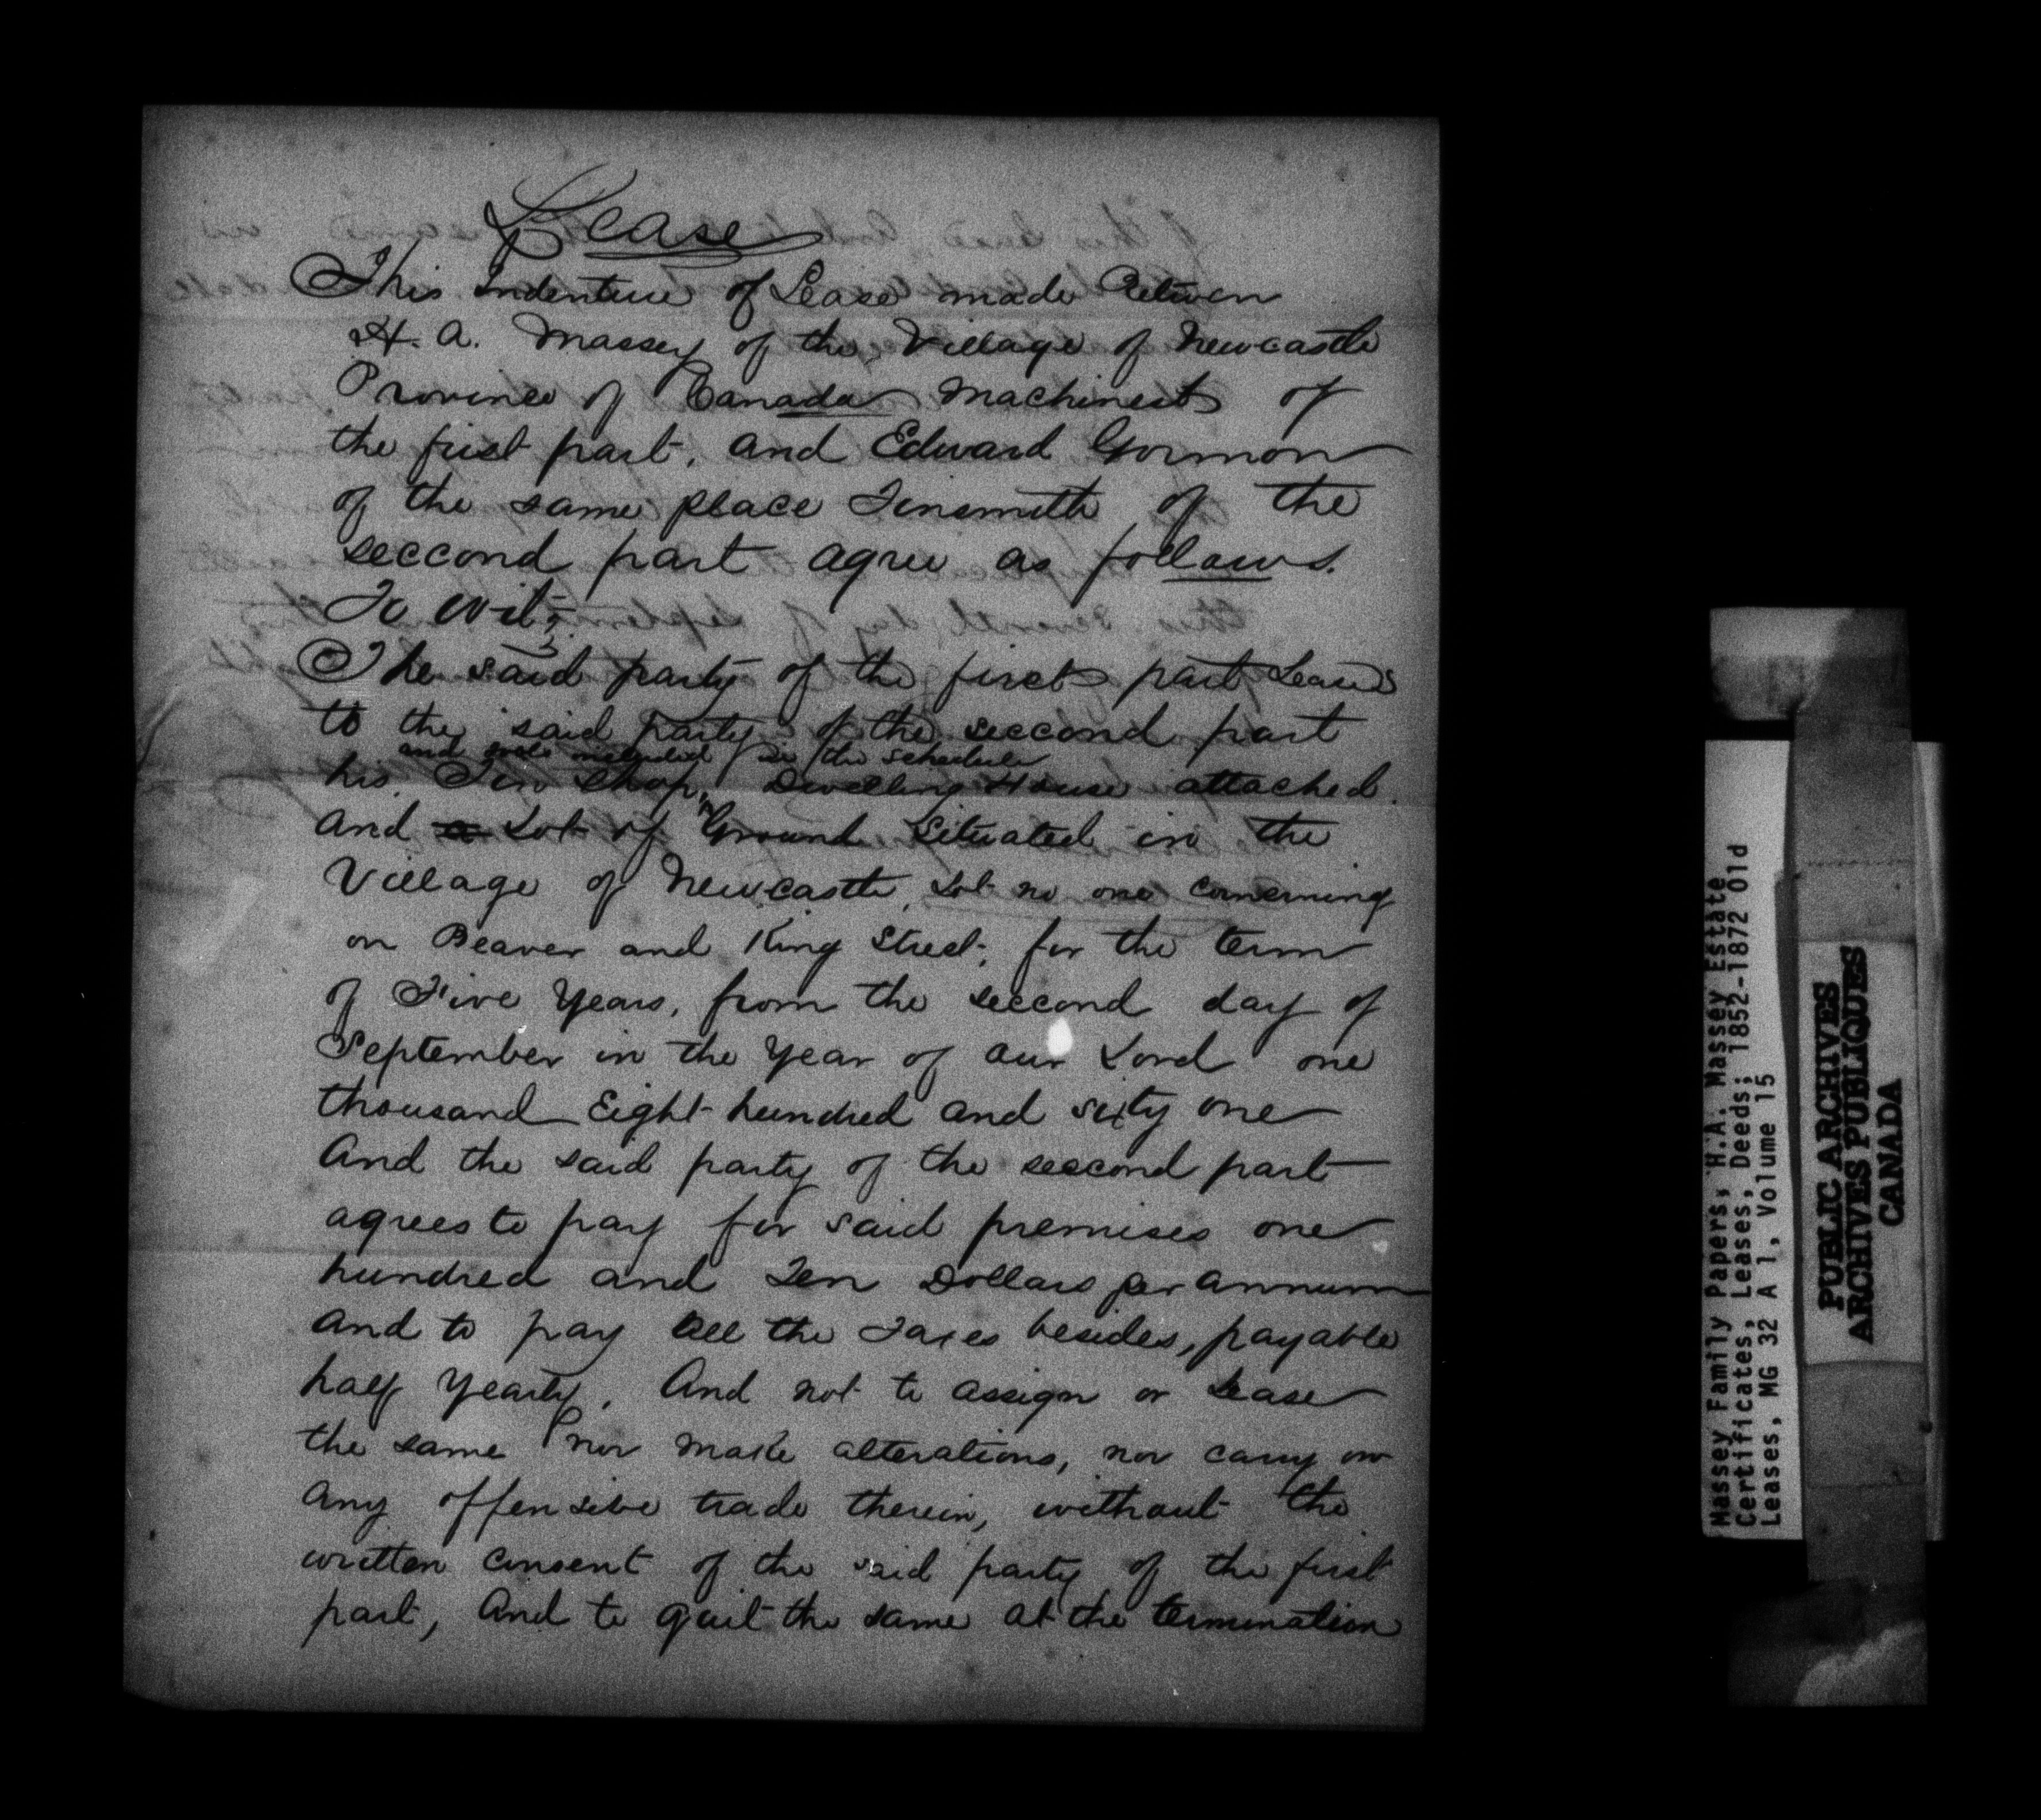 Lease
This Indenture of Lease made Between
H. A. Massey of the Village of Newcastle
Province of Canada Machinest of
the first part, and Edward Gormon
of the same place Tinsmith of the
seccond part agree as follows.
To Wit;
The said party of the first part Leases
to the said party of the seccond part
and included in the schedule
his Tin Shop, Dwelling House attached.
and a Lot of Ground Situated in the
Village of Newcastle, Lot no one cornerning
on Beaver and King Street, for the term
of Five Years, from the seccond day of
September in the Year of our Lord one
thousand Eight hundred and sixty one
And the said party of the seccond part
agrees to pay for said premises one
hundred and Ten Dollars per annum
and to pay all the Taxes besides, payable
half Yearly, And not to assign or Lease
the same nor make alterations, nor carry on
any offensive trade therein, without the
written consent of the said party of the first
part, And to quit the same at the termination
Massey Family Papers, H.A. Massey Estate
Certificates, Leases, Deeds; 1852-1872 Old
Leases, MG 32 A 1, Volume 15
PUBLIC ARCHIVES
ARCHIVES PUBLIQUES
CANADA